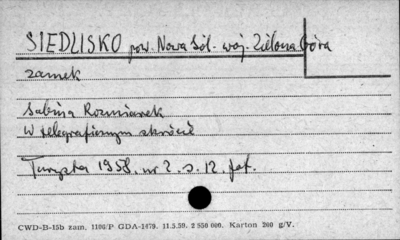 SIEDLISKO pow. Nowa Sól. woj. Zielona Góra
zamek
Sabina Rozmianek
W telegraficznym skrócie
Turysta 1958. nr 2. s. 12. fot.
CWD-B-15b zam. 1106/P GDA-1479. 11.5.59. 2 850 000. Karton 260 g/V.